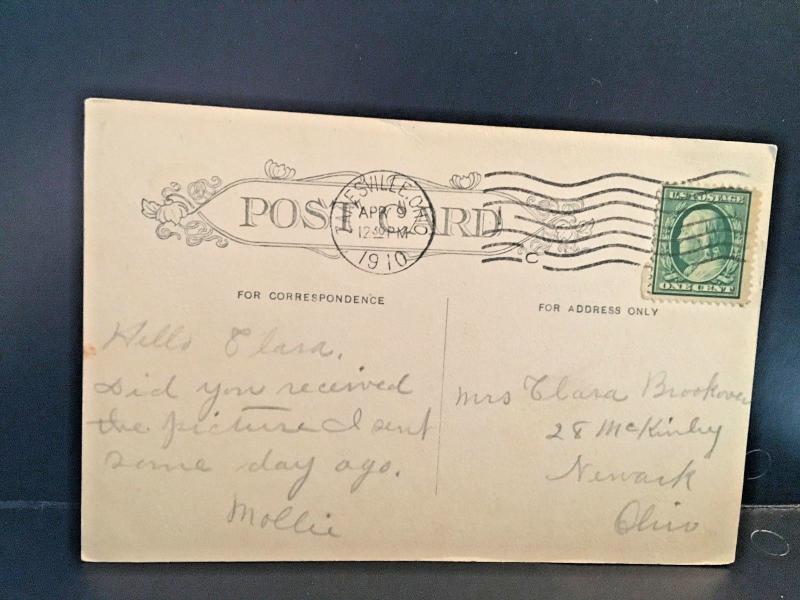 POST CARD
ZANESVILLE, OHIO
APR 9
12 30 PM
1910
C
U.S. POSTAGE
ONE CENT
FOR CORRESPONDENCE
FOR ADDRESS ONLY
Hello Clara.
Did you received
the picture I sent
some day ago.
Mollie
Mrs Clara Brookover
28 McKinley
Newark
Ohio